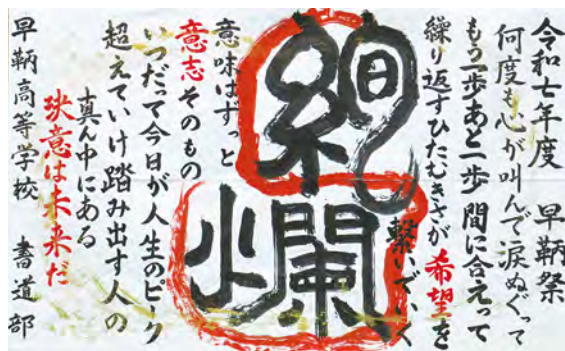 令和七年度 早鞆祭
何度も心が叫んで涙ぬぐって
もう一歩あと一歩 間に合えって
繰り返すひたむきさが希望を
繋いでいく
絢爛
意味はずっと
意志そのもの
いつだって今日が人生のピーク
超えていけ踏み出す人の
真ん中にある
決意は未来だ
早鞆高等学校 書道部